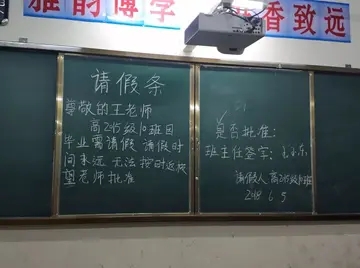 雅韵博学
香致远
请假条
尊敬的王老师
高245级10班因
毕业需请假 请假时
间永远 无法按时返校
望老师批准
是否批准:
班主任签字:
请假人 高245级10班
2018 6 5